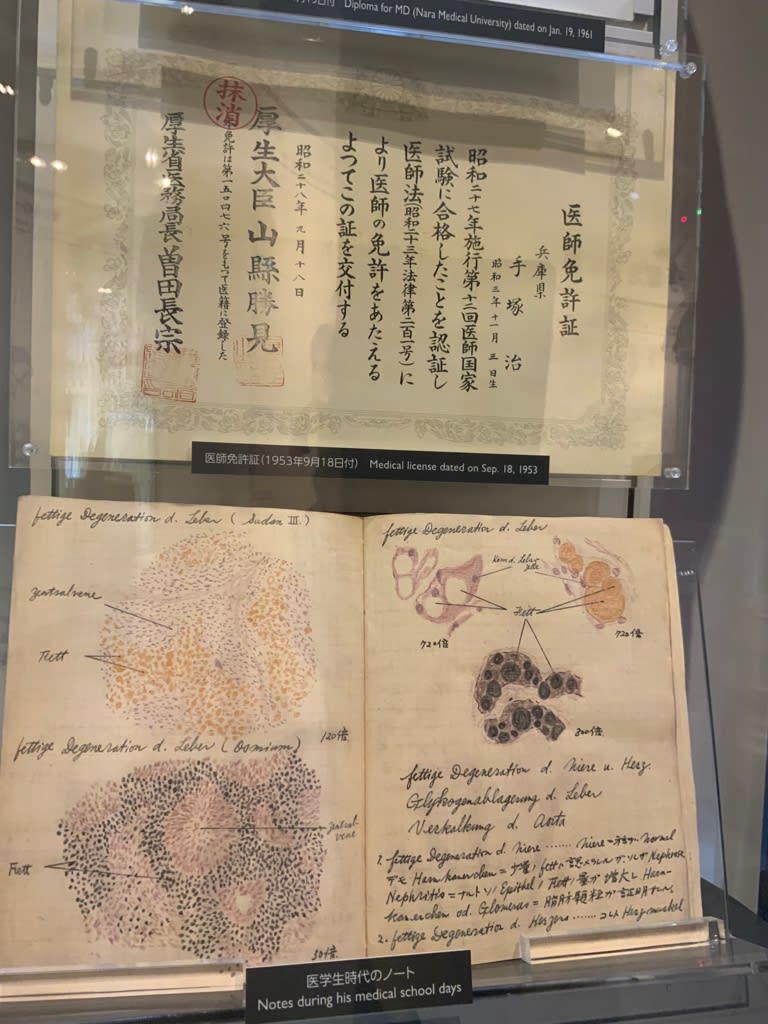 月19日付 Diploma for MD (Nara Medical University) dated on Jan. 19, 1961
医師免許証
兵庫県
手塚治
昭和三年十一月三日生
昭和二十七年施行第十三回医師国家
試験に合格したことを認証し
医師法(昭和二十三年法律第二百一号)に
より医師の免許をあたえる
よつてこの証を交付する
昭和二十八年九月十八日
厚生大臣 山縣勝見
免許は第一五〇四七六号をもつて医籍に登録した
厚生省医務局長 曽田長宗
抹消
医師免許証(1953年9月18日付) Medical license dated on Sep. 18, 1953
fettige Degeneration d. Leber ( Sudan III.)
Zentralvene
Fett
120倍
fettige Degeneration d. Leber ( Osmium)
Zentral-
vene
Fett
50倍
fettige Degeneration d. Leber
Kern d. Leber
zelle
Fett
720倍
720倍
300倍
fettige Degeneration d. Niere u. Herz.
Glykogenablagerung d. Leber
Verkalkung d. Aorta
1. fettige Degeneration d. Niere ....... Niere normal
デモ Harnkanälchen = 少量, fett Nephrose
Nephritis = Epithel, Fett, 量が増大し Harn-
kanälchen od. Glomerus = 脂肪顆粒が証明
2. fettige Degeneration d. Herzens ...... コレハ Herzmuskel
医学生時代のノート
Notes during his medical school days